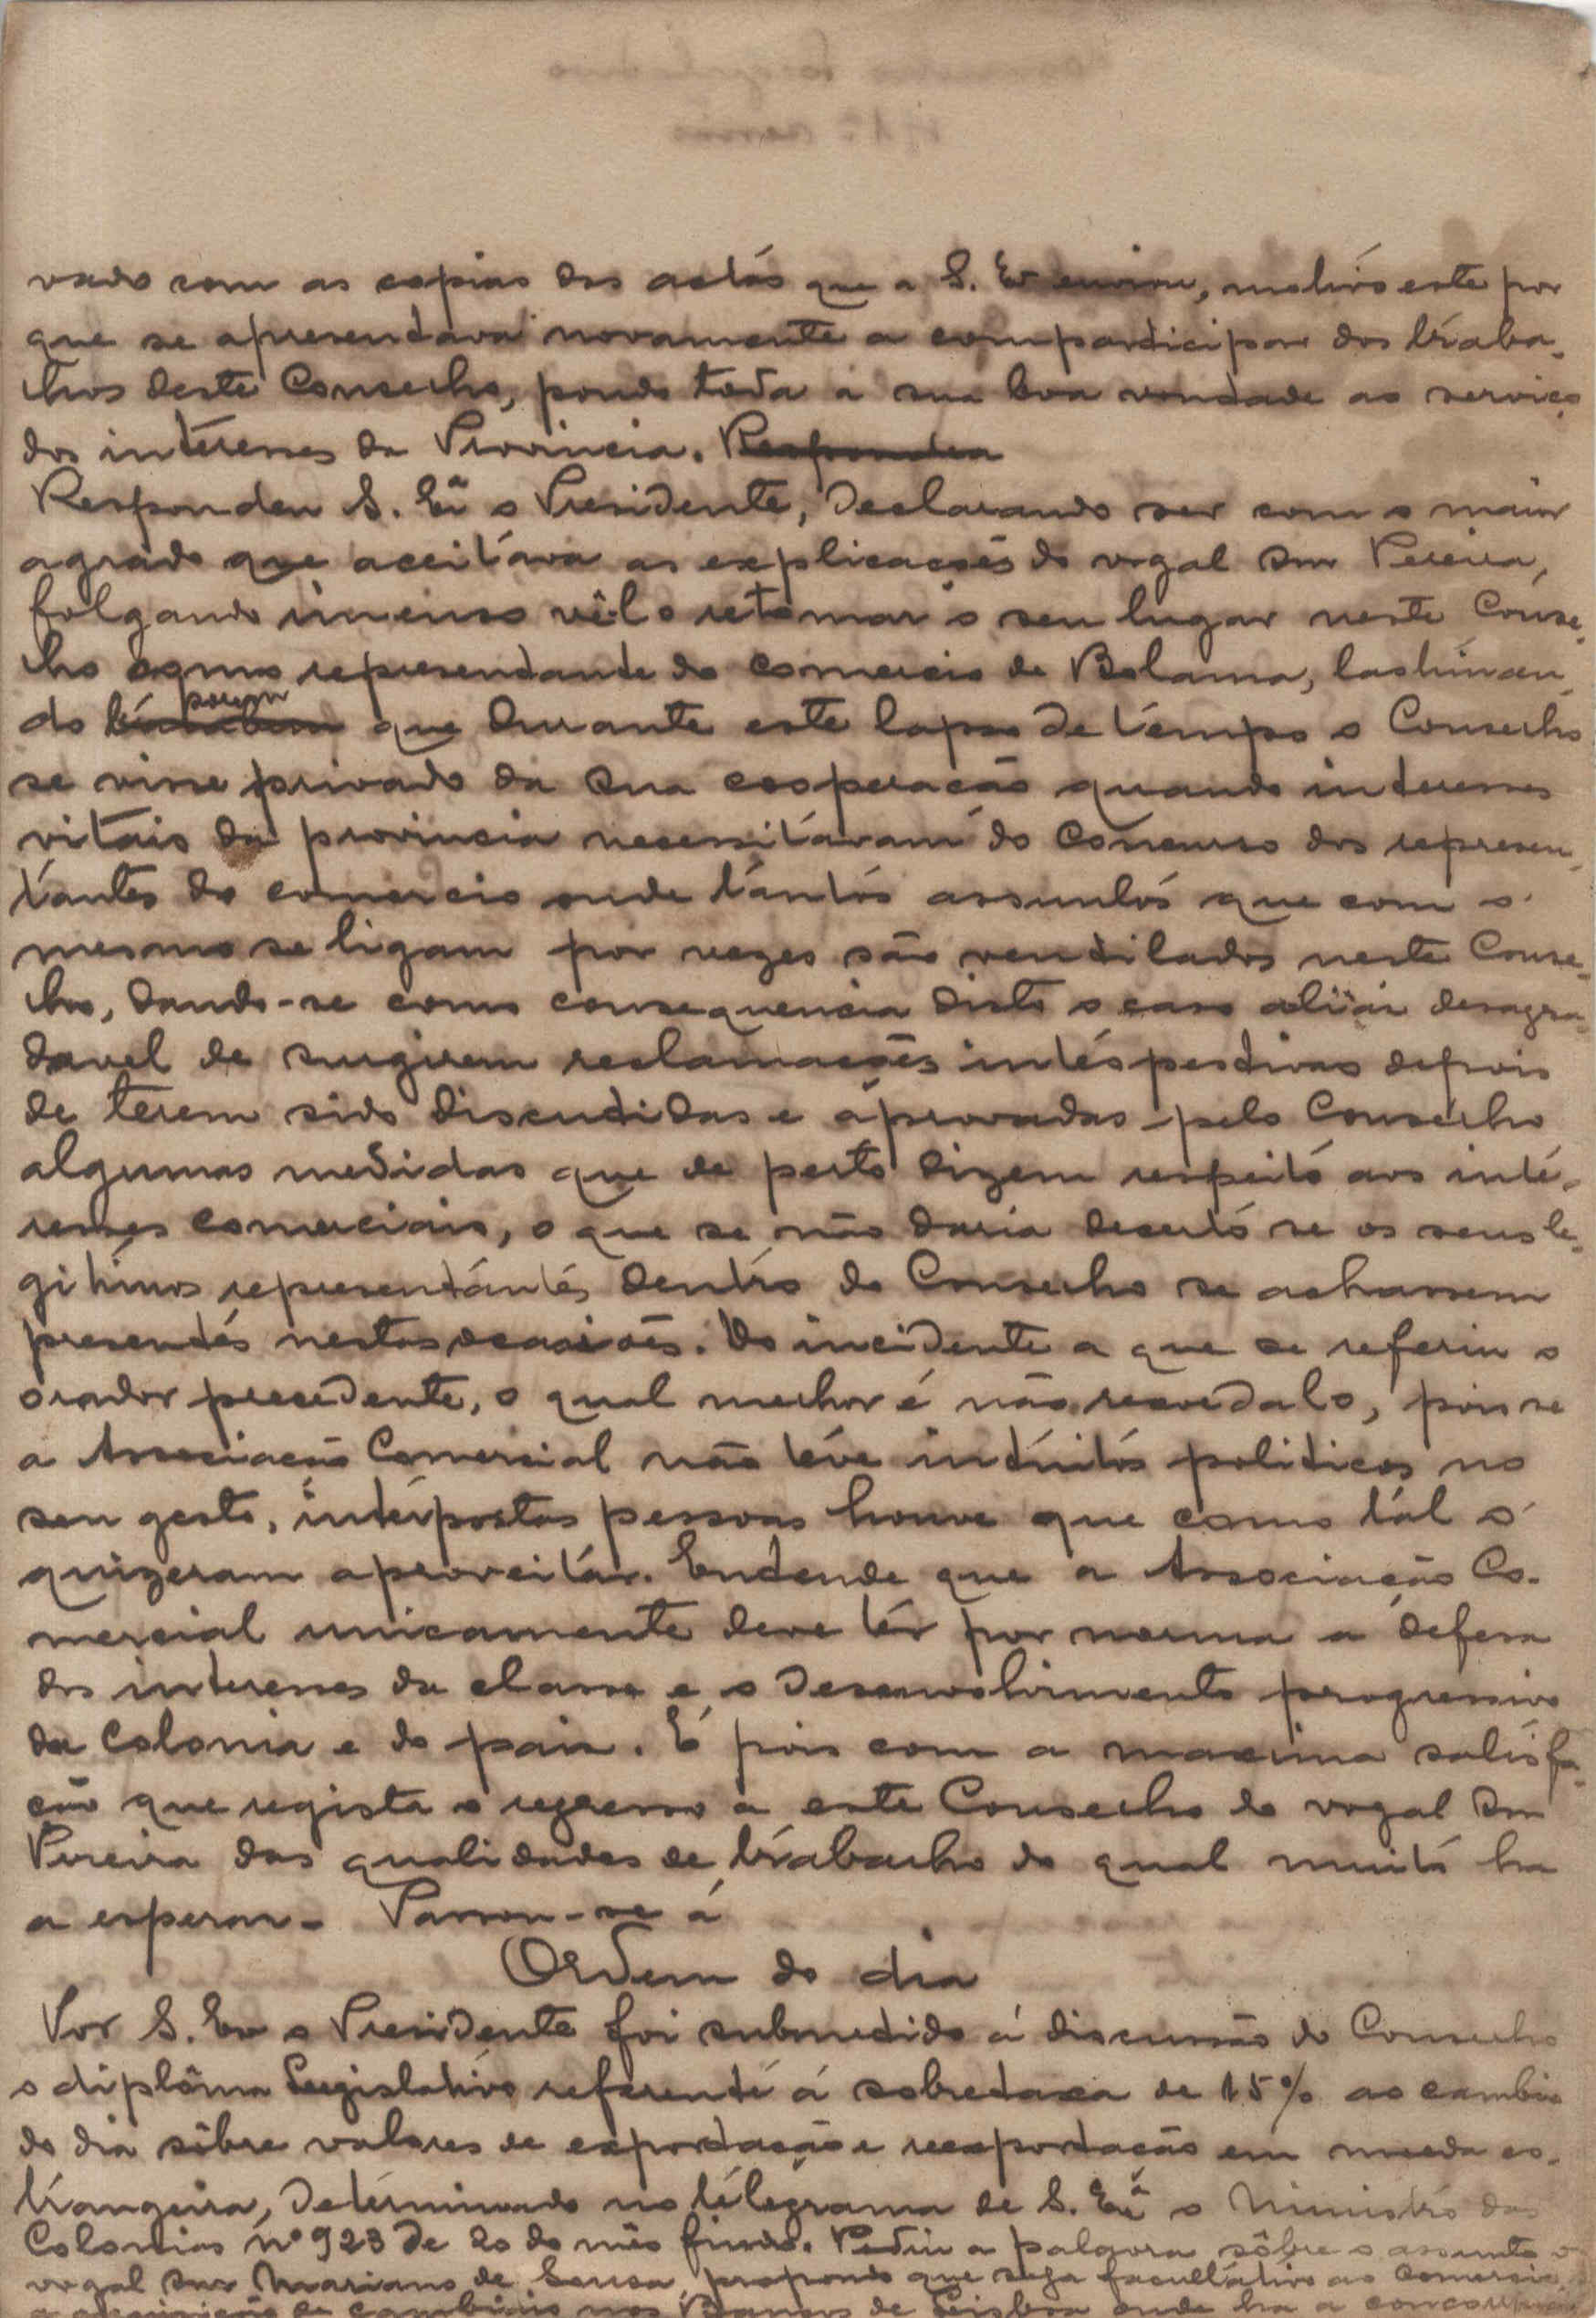 vado com as copias das actas que a S. Ex enviou, motivo este por
que se apresentava novamente a comparticipar dos traba-
lhos deste Conselho, pondo toda a sua boa vondade ao serviço
dos interesses da Provincia. Respondeu
Respondeu S. Exª o Presidente, declarando ser com o maior
agrado que aceitava as explicações do vogal Snr Pereira,
folgando imenso vê-lo retomar o seu lugar neste Conse-
lho como representante do comercio de Bolama, lastiman-
do tambem porem que durante este lapso de tempo o Conselho
se visse privado da sua cooperação quando interesses
vitais da provincia necessitavam do concurso dos represen-
tantes do comercio onde tantos assuntos que com o
mesmo se ligam por vezes são ventilados neste Conse-
lho, dando-se como consequencia disto o caso aliás desagra-
davel de surgirem reclamações intespestivas depois
de terem sido discutidas e aprovadas pelo Conselho
algumas medidas que de perto dizem respeito aos inte-
resses comerciais, o que se não daria decerto se os seus le-
gitimos representantes dentro do Conselho se achassem
presentes nestas ocasiões. Do incidente a que se referiu o
orador precedente, o qual melhor é não recordalo, pois se
a Associação Comercial não teve intuitos politicos no
seu gesto, interpostas pessoas houve que como tál o
quizeram aproveitar. Entende que a Associação Co-
mercial unicamente deve ter por norma a defesa
dos interesses da classe e o desenvolvimento progressivo
da Colonia e do pais. É pois com a maxima satisfa-
ção que regista o regresso a este Conselho do vogal Snr
Pereira das qualidades de trabalho do qual muito ha
a esperar. Passou-se á
Ordem do dia
Por S. Ex o Presidente foi submetido á discussão do Conselho
o diplôma Legislativo referente á sobretaxa de 15% ao cambio
do dia sôbre valores de exportação e reexportação em moeda es-
trangeira, determinado no telegrama de S. Exª o Ministro das
Colonias nº 923 de 20 do mês findo. Pediu a palavra sôbre o assunto o
vogal Snr Mariano de Sousa, propondo que seja facultativo ao Comercio
a aquisição de cambiais nos Bancos de Lisboa onde ha a